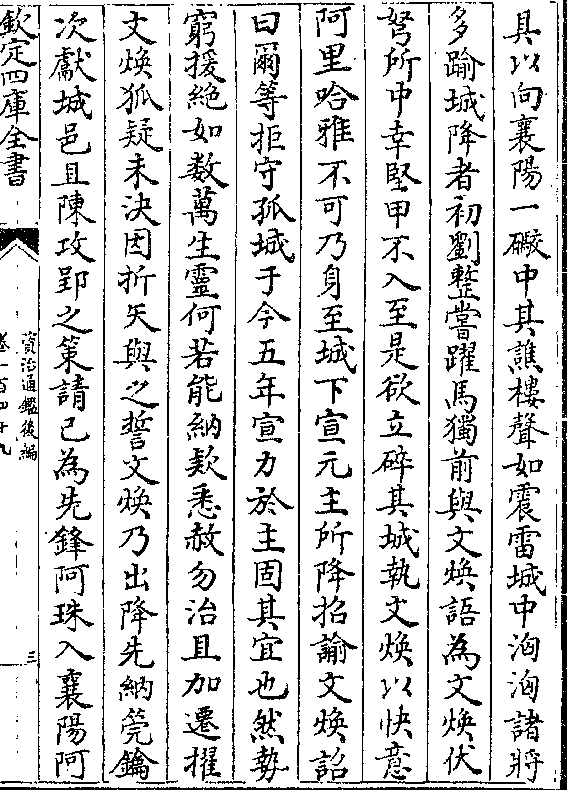 具以向襄陽一礮中其譙樓聲如震雷城中洶洶諸將
多踰城降者初劉整嘗躍馬獨前與文煥語為文煥伏
弩所中幸堅甲不入至是欲立碎其城執文煥以快意
阿里哈雅不可乃身至城下宣元主所降招諭文煥詔
曰爾等拒守孤城于今五年宣力於主固其宜也然勢
窮援絶如數萬生靈何若能納欵悉赦勿治且加遷擢
文煥狐疑未決因折矢與之誓文煥乃出降先納筦鑰
次獻城邑且陳攻郢之策請己為先鋒阿珠入襄陽阿
欽定四庫全書
資治通鑑後編
卷一百四十九
三